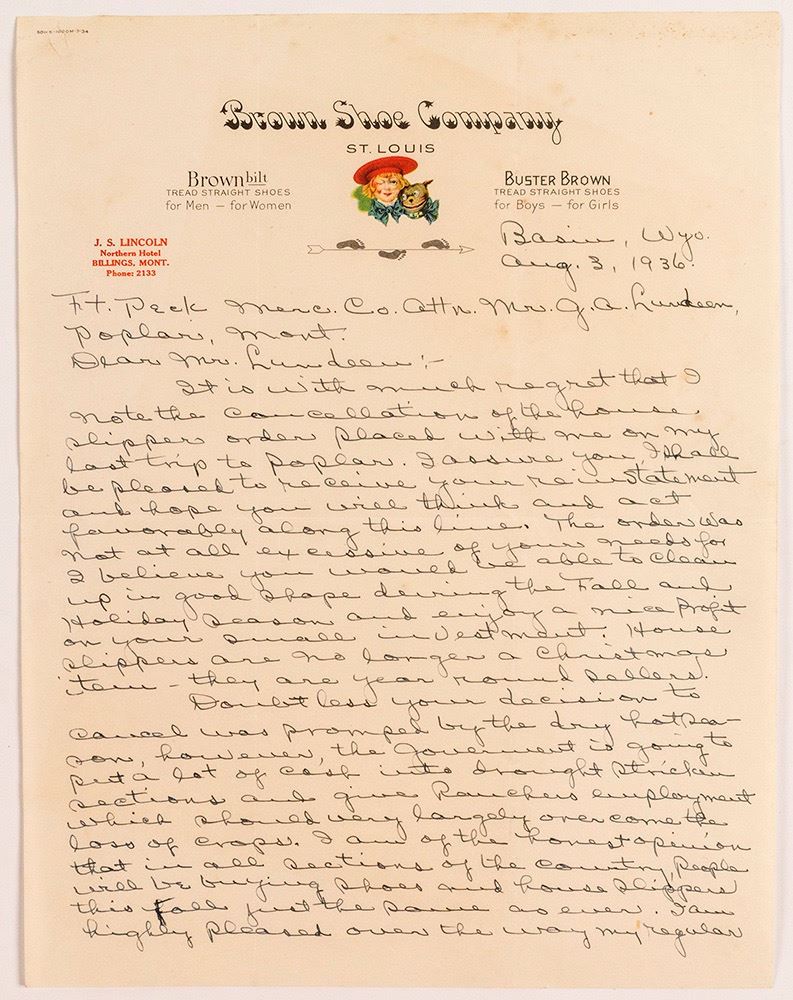 Brown Shoe Company
ST. LOUIS
Brownbilt
TREAD STRAIGHT SHOES
for Men — for Women
BUSTER BROWN
TREAD STRAIGHT SHOES
for Boys — for Girls
J. S. LINCOLN
Northern Hotel
BILLINGS, MONT.
Phone: 2133
Basin, Wyo.
Aug. 3, 1936.
Ft. Peck Merc. Co. Attn. Mr. G. A. Lundeen,
Poplar, Mont.
Dear Mr. Lundeen:-
It is with much regret that I
note the cancellation of the house
slippers order placed with me on my
last trip to Poplar. I assure you, I shall
be pleased to receive your reinstatement
and hope you will think and act
favorably along this line. The order was
not at all excessive of your needs for
I believe you would be able to clean
up in good shape during the Fall and
Holiday season and enjoy a nice profit
on your small investment. House
slippers are no longer a Christmas
item - they are year round sellers.
Doubtless your decision to
cancel was promped by the dry hot sea-
son, however, the Government is going to
put a lot of cash into drought stricken
sections and give Ranchers employment
which should very largely overcome the
loss of crops. I am of the honest opinion
that in all sections of the country, People
will be buying shoes and house slippers
this Fall just the same as ever. I am
highly pleased over the way my regular